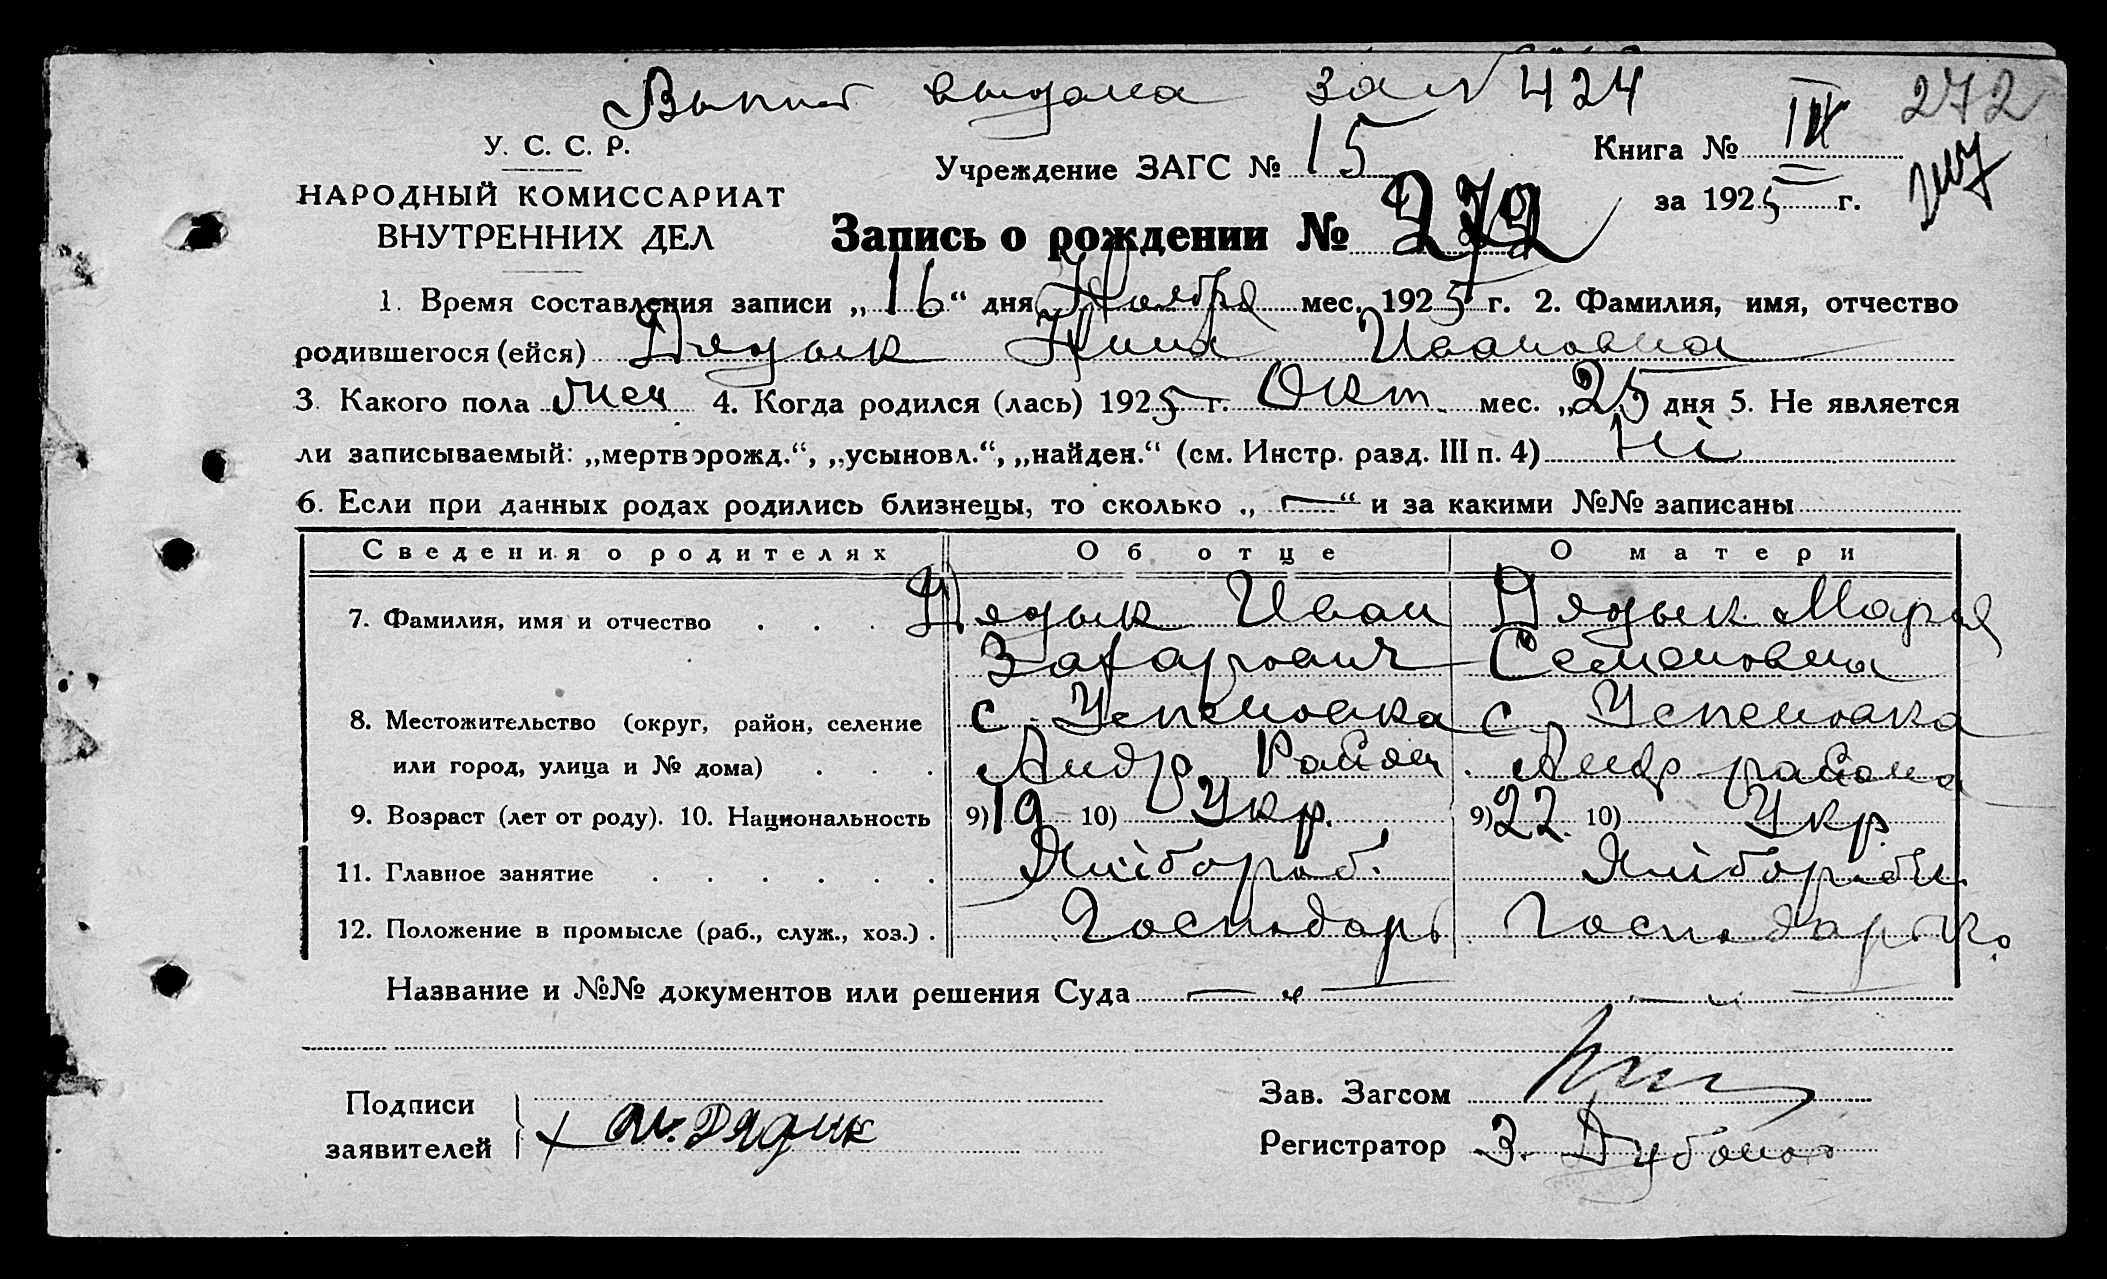 выдана за № 424
272
У. С. С. Р.
НАРОДНЫЙ КОМИССАРИАТ
ВНУТРЕННИХ ДЕЛ
Учреждение ЗАГС № 15
Книга № III
за 1925 г.
Запись о рождении № 272
1. Время составления записи „16“ дня Ноября мес. 1925 г. 2. Фамилия, имя, отчество
родившегося (ейся) Дядык Нина Ивановна
3. Какого пола жен 4. Когда родился (лась) 1925 г. Окт. мес. „25 дня 5. Не является
ли записываемый: „мертворожд.“, „усыновл.“, „найден.“ (см. Инстр. разд. III п. 4) Ні
6. Если при данных родах родились близнецы, то сколько „—“ и за какими №№ записаны
Сведения о родителях Об отце О матери
7. Фамилия, имя и отчество . . . Дядык Иван Дядык Мария
Захарович Семеновна
8. Местожительство (округ, район, селение с. Успеновка с. Успеновка
или город, улица и № дома) . . . Андр. Район Андр района
9. Возраст (лет от роду). 10. Национальность 9) 19 10) Укр. 9) 22. 10) Укр.
11. Главное занятие . . . . . . Хлібороб. Хліборобк.
12. Положение в промысле (раб., служ., хоз.) . Господарь Господарька
Название и №№ документов или решения Суда — „ — — „ —
Подписи
заявителей
+ Ив. Дядик
Зав. Загсом
Регистратор З.